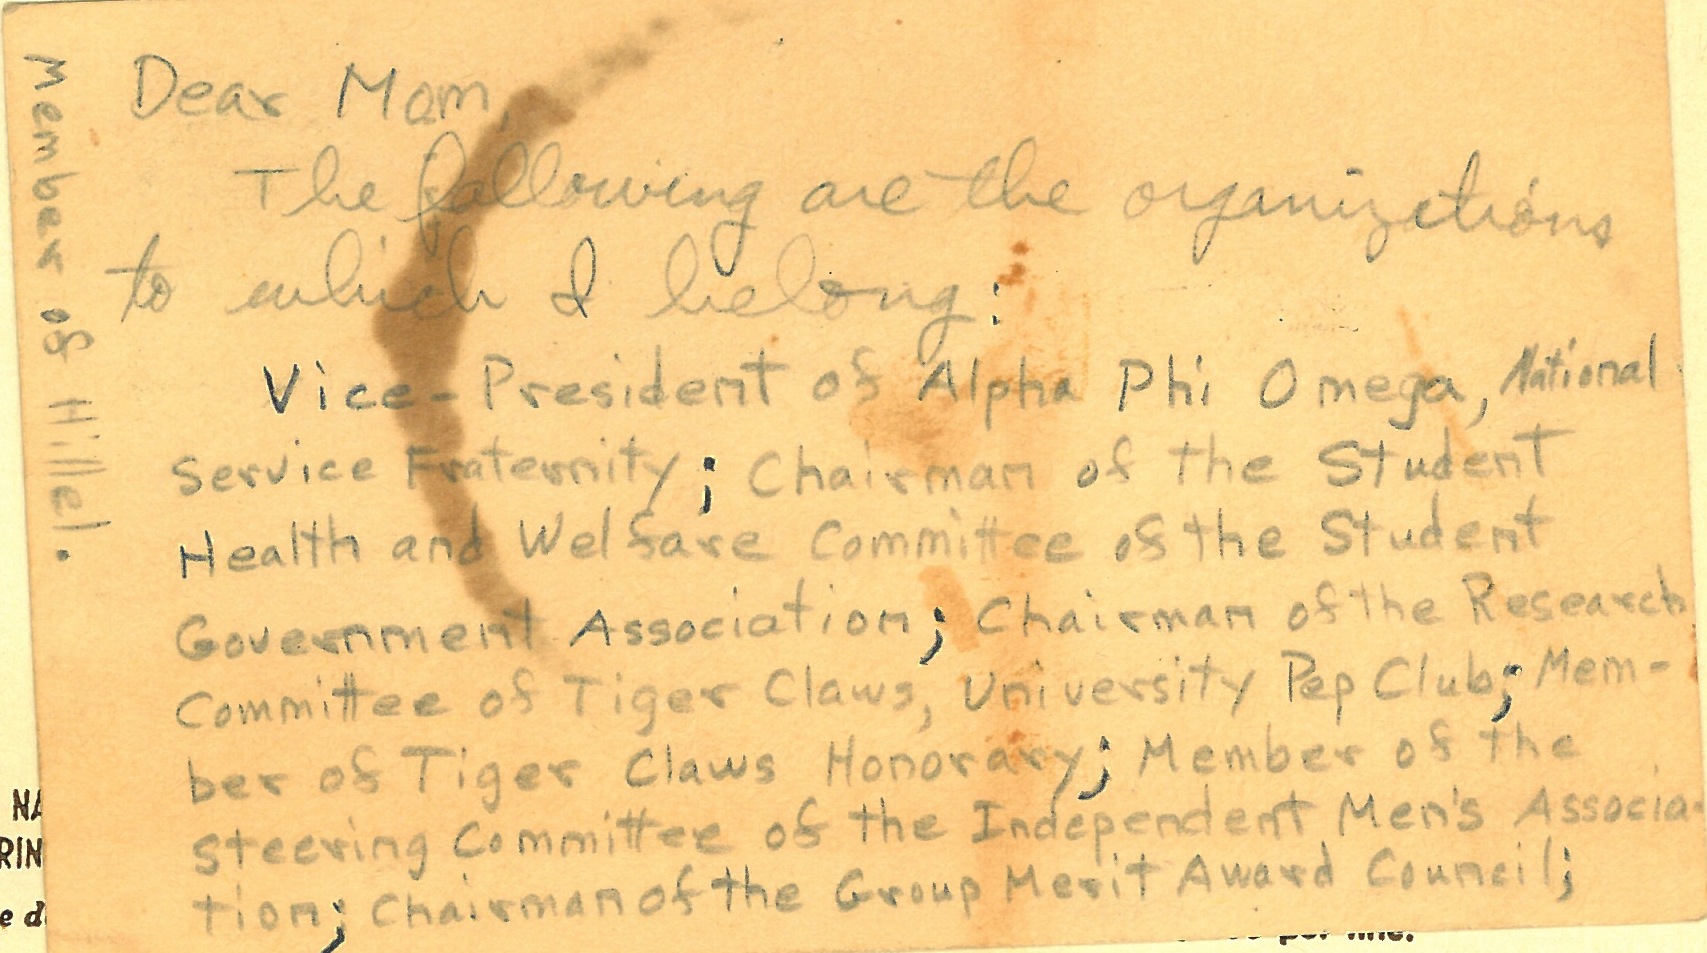 Dear Mom,
The following are the organizations
to which I belong:
Vice-President of Alpha Phi Omega, National
Service Fraternity; Chairman of the Student
Health and Welfare Committee of the Student
Government Association; Chairman of the Research
Committee of Tiger Claws, University Pep Club; Mem-
ber of Tiger Claws Honorary; Member of the
Steering Committee of the Independent Men's Associa-
tion; Chairman of the Group Merit Award Council;
Member of Hillel.
NA
RIN
e d
per line.